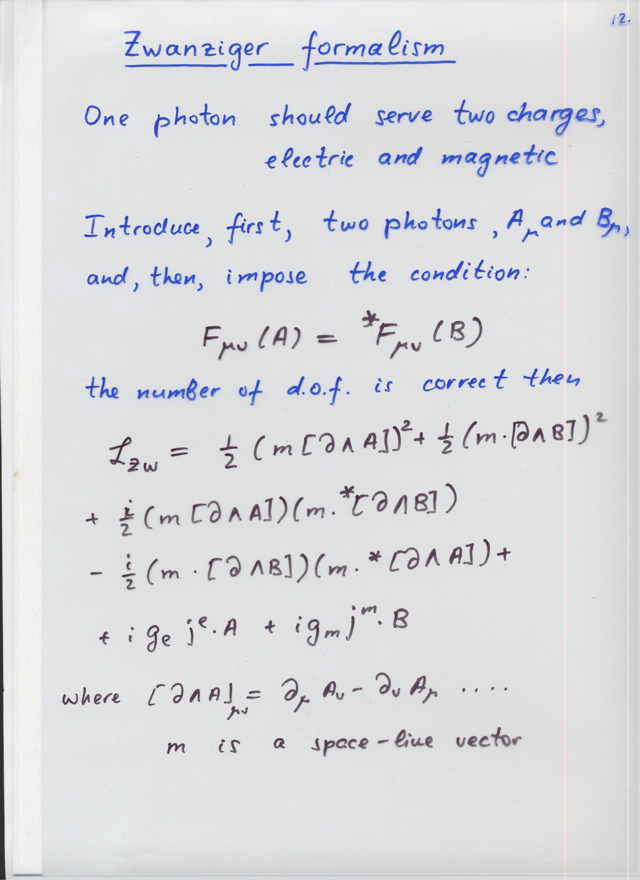 12.
Zwanziger formalism
One photon should serve two charges,
electric and magnetic
Introduce, first, two photons, A_μ and B_μ,
and, then, impose the condition:
F_μν (A) = *F_μν (B)
the number of d.o.f. is correct then
ℒ_zw = 1/2 (m [∂∧A])² + 1/2 (m·[∂∧B])²
+ i/2 (m [∂∧A])(m·*[∂∧B])
- i/2 (m·[∂∧B])(m·*[∂∧A]) +
+ i g_e j^e·A + i g_m j^m·B
where [∂∧A]_μν = ∂_μ A_ν - ∂_ν A_μ ....
m is a space-like vector